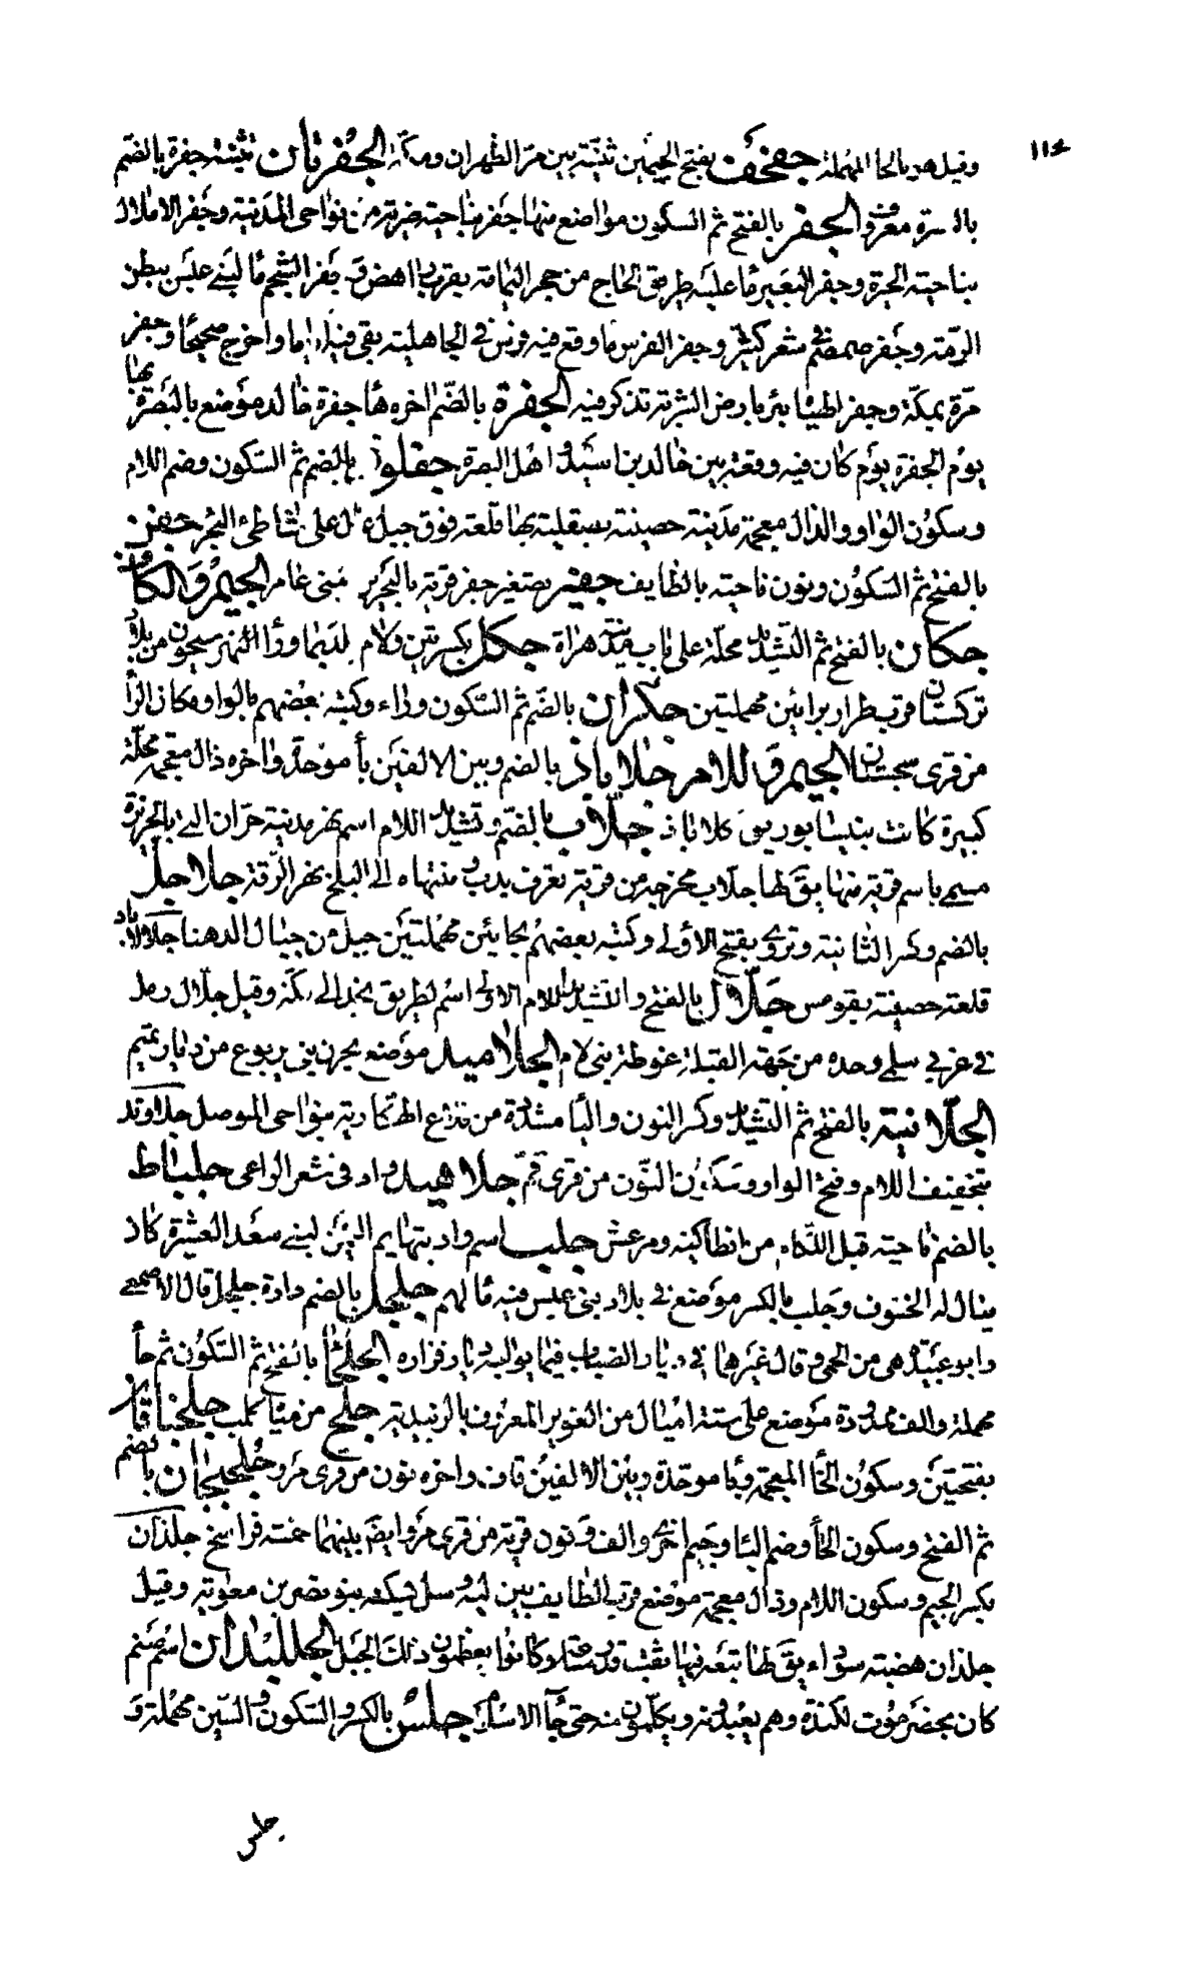 ١١٤
وقيل هو بالحا المهملة جفجف بفتح الجيمين ثنية بين مر الظهران ومكة الجفرتان تثنية جفرة بالضم
معروفة الجفر بالفتح ثم السكون مواضع منها جفر بناحية ضرية من نواحي المدينة وجفر الاملاك
بناحية الحيرة وجفر البعير ما عليه طريق الحاج من حجر اليمامة بقرب راهص وجفر الشحم ما لبني عبس ببطن
الرمة وجفر ضمضم في شعر كثير وجفر الفرس ما وقع فيه فرس في الجاهلية بقي فيه اياما واخرج صحيحا وجفر
مرة بمكة وجفر الهباة بئر بارض الشربة تذكر فيه الجفرة بالضم اخره ها جفرة خالد موضع بالبصرة بها
يوم الجفرة يوم كان فيه وقعة بين خالد بن اسيد و اهل البصرة جفلوذ بالضم ثم السكون وضم اللام
وسكون الواو والذال معجمة مدينة حصينة بصقلية بها قلعة فوق جبل على شاطئ البحر جفن
بالفتح ثم السكون ونون ناحية بالطايف جفير تصغير جفر قرية بالبحرين لبني عامر الجيم والكاف
جكان بالفتح ثم التشديد محلة على باب مدينة هراة جكل بكسرتين ولام بلد بما وراء النهر سيحون من بلاد
تركستان قرب طرار برائين مهملتين جكران بالضم ثم السكون وراء وكتبه بعضهم بالواو مكان الراء
من قرى سجستان الجيم واللام جلاباذ بالضم وبين الالفين با موحدة واخره ذال معجمة محلة
كبيرة كانت بنيسابور يق كلاباذ جلاب بالضم وتشديد اللام اسم نهر مدينة حران التي بالجزيرة
مسمى باسم قرية منها يق لها جلاب مخرجه من قرية تعرف بدب ومنتهاه الى البليخ نهر الرقة جلاجل
بالضم وكسر الثانية وتروى بفتح الاولى وكتبه بعضهم بحائين مهملتين جبل من جبال الدهنا جلالاباد
قلعة حصينة بقومس جلال بالفتح والتشديد اللام الاولى اسم لطريق نجد الى مكة وقيل جلال رمل
في غربي سلمى وحده من جهة القبلة غوطة بني لام الجلاميد موضع بحزن بني يربوع من ديار تميم
الجلانية بالفتح ثم التشديد وكسر النون واليا مشددة من قلاع الهكارية بنواحي الموصل جلاوند
بتخفيف اللام وفتح الواو وسكون النون من قرى قم جلاهيد واد في شعر الراعي جلباط
بالضم ناحية قبل اللكام من انطاكية ومرعش جلب اسم واد بتهايم اليمن لبني سعد العشيرة كان
يقال له الختوف وجلب بالكسر موضع في بلاد بني عبس فيه ما لهم جلجل بالضم دارة جلجل قال الاصمعي
وابو عبيدة هي من الحمى وقال غيرهما في ديار الضباب فيما يوالي ديار فزاره الجلحاء بالفتح ثم السكون ثم حا
مهملة والف ممدودة موضع على ستة اميال من الغوير المعروف بالزبيدية جلح من مياه كلب جلخباقان
بفتحتين وسكون الخا المعجمة وبا موحدة وبين الالفين قاف واخره نون من قرى مرو جلخبجان بالضم
ثم الفتح وسكون الخا وضم البا وجيم اخرى والف ونون قرية من قرى مرو ايضا بينهما خمسة فراسخ جلذان
بكسر الجيم وسكون اللام وذال معجمة موضع قرب الطايف بين ليه وسبل يسكنه بنو نصر بن معوية وقيل
جلذان هضبة سوداء يق لها تبعه فيها نقب كانوا يعظمون ذلك الجبل الجلسد ان اسم صنم
كان بحضرموت لكندة وهم يعبدونه ويكلمون منه حتى جا الاسلام جلس بالكسر والسكون والسين مهملة و
جلس